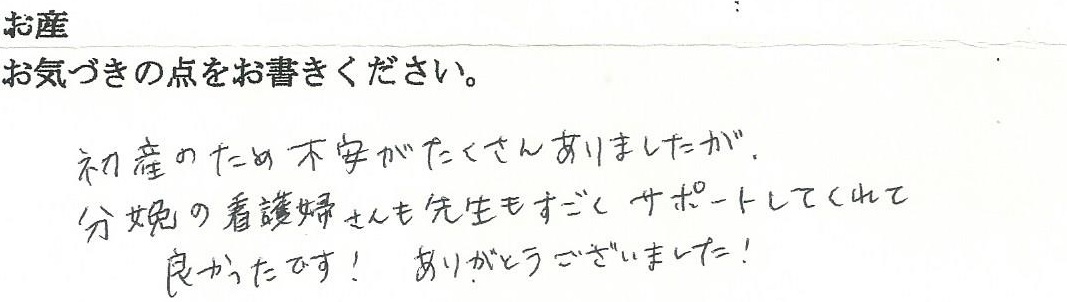 お産
お気づきの点をお書きください。
初産のため不安がたくさんありましたが、
分娩の看護婦さんも先生もすごくサポートしてくれて
良かったです！ ありがとうございました！